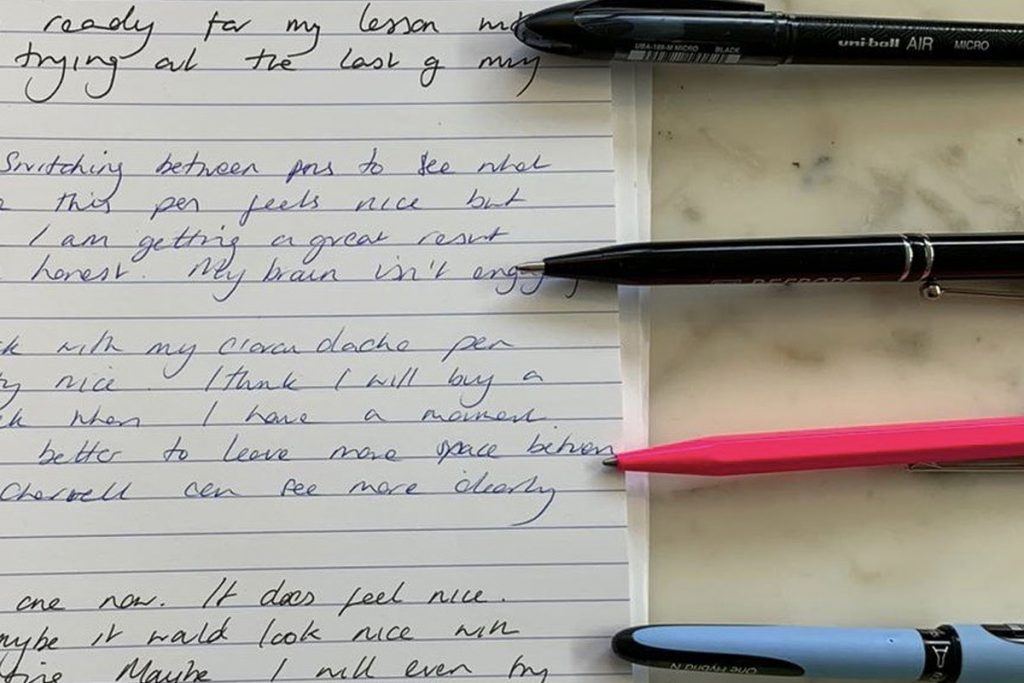 ready for my lesson
trying out the last of my
uni-ball AIR MICRO
UBA-188-M MICRO BLACK
Switching between pens to see what
this pen feels nice but
I am getting a great result
honest. My brain isn't
with my caran dache pen
nice. I think I will buy a
when I have a moment
better to leave more space between
can see more clearly
one now. It does feel nice.
maybe it would look nice with
Maybe I will even try
One Hybrid N